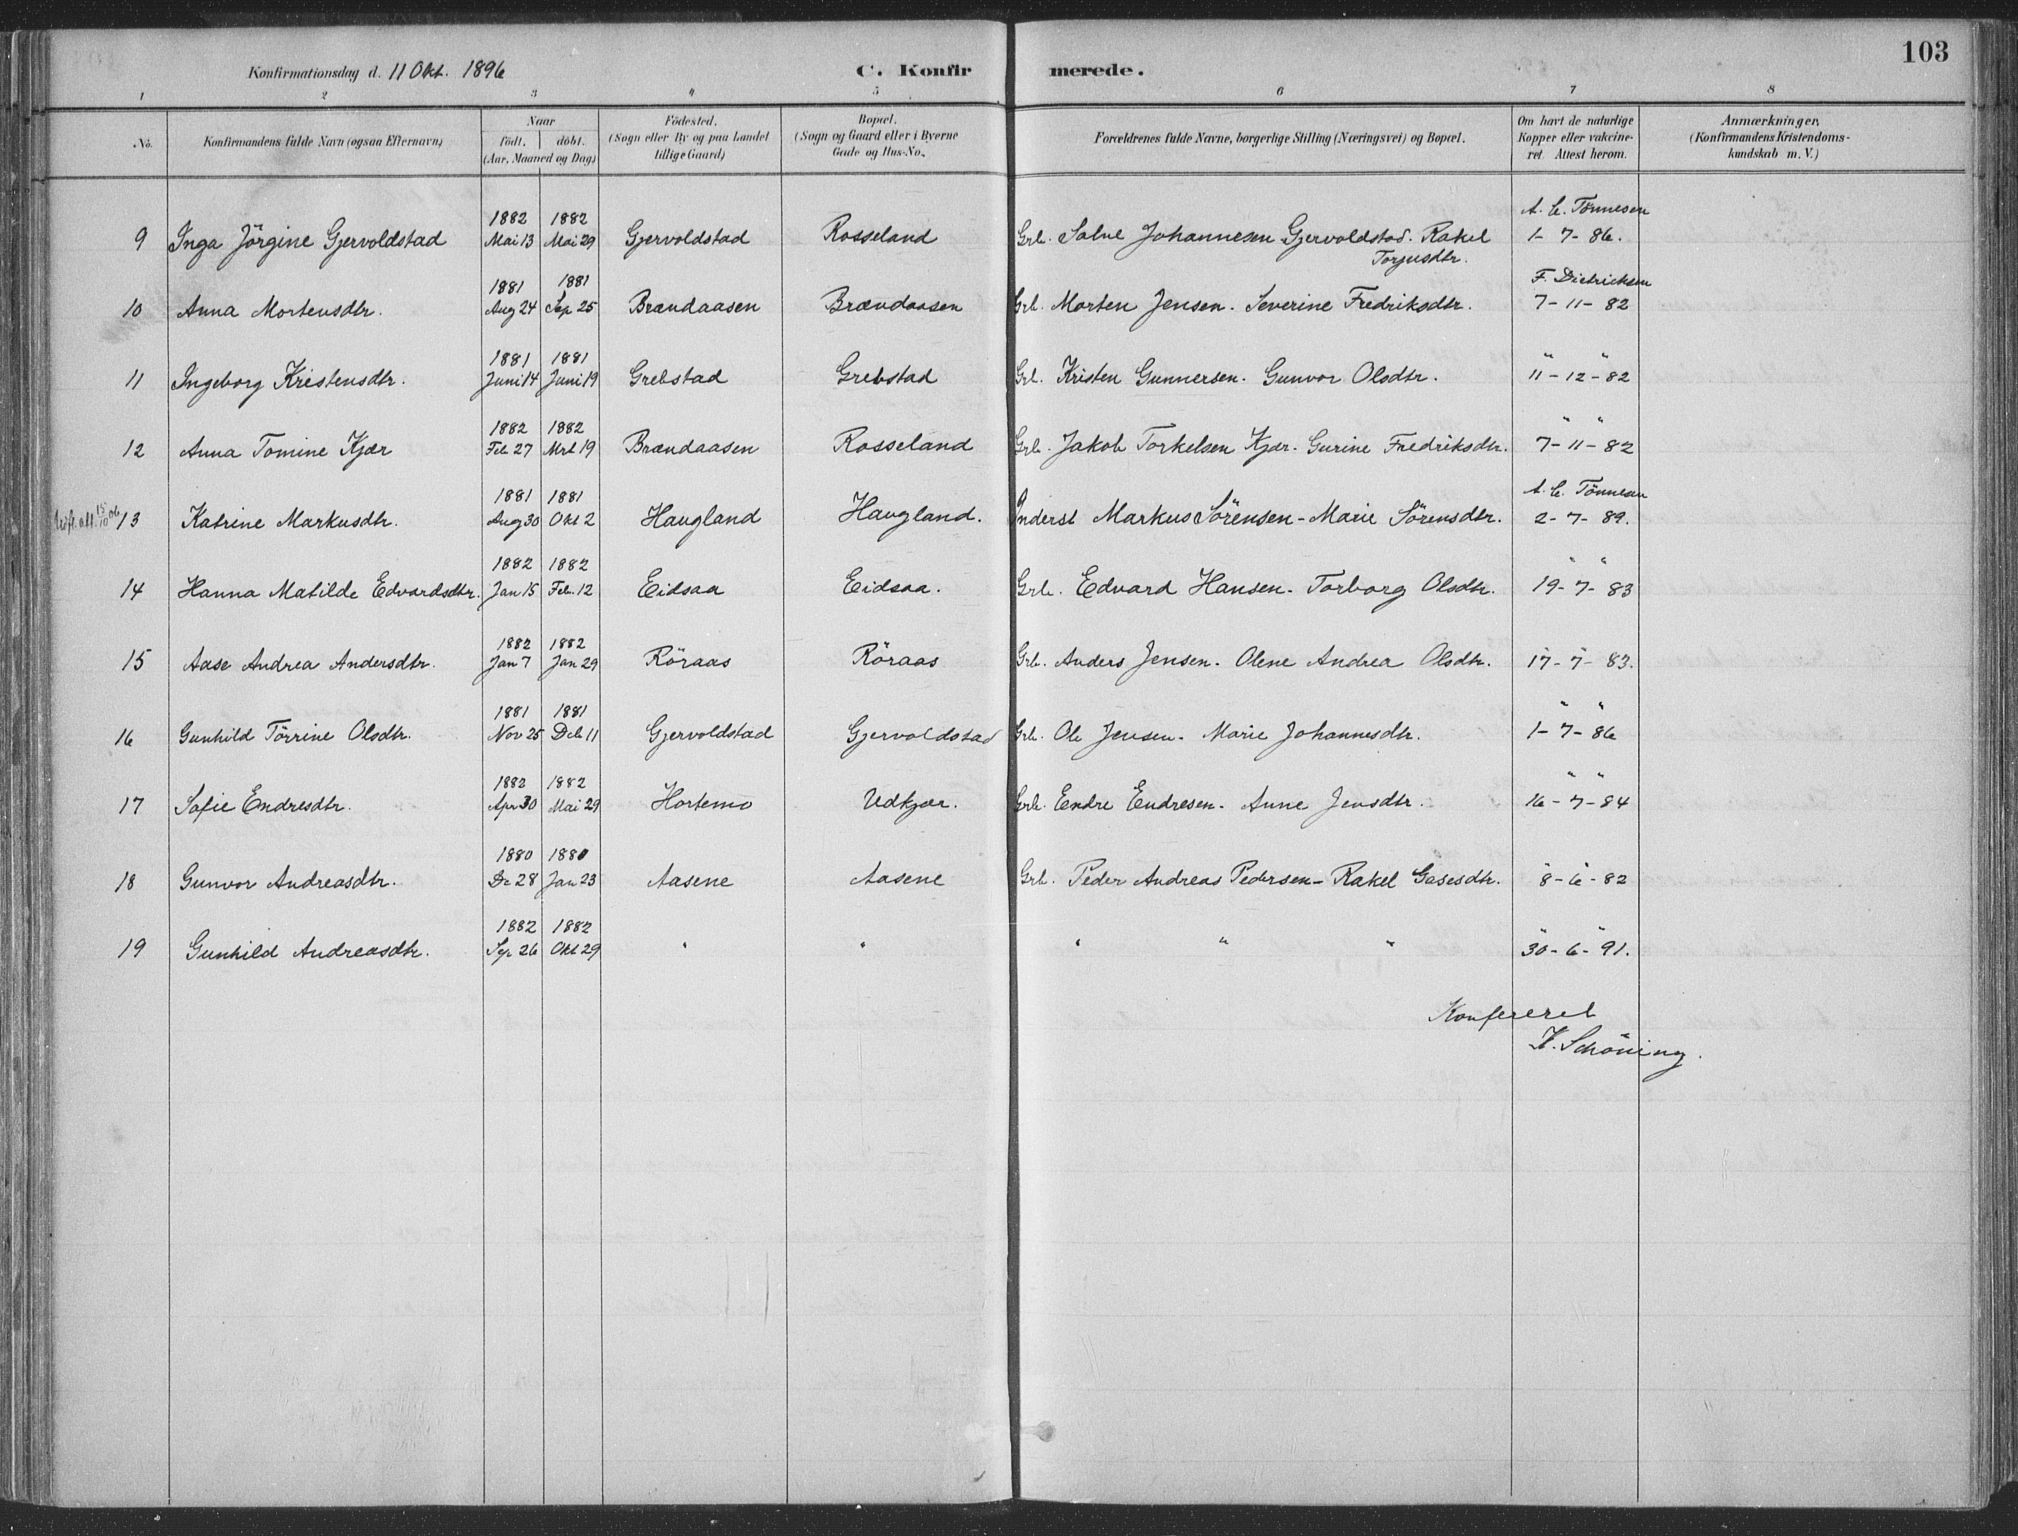 103
Konfirmationsdag d. 11 Okt. 1896 C. Konfirmerede.
1 2 3 4 5 6 7 8
No. Konfirmandens fulde Navn (ogsaa Efternavn) Naar født. døbt. (Aar, Maaned og Dag) Fødested. (Sogn eller By og paa Landet tillige Gaard) Bopæl. (Sogn og Gaard eller i Byerne Gade og Hus-No. Forældrenes fulde Navne, borgerlige Stilling (Næringsvei) og Bopæl. Om havt de naturlige Kopper eller vakcineret Attest herom. Anmærkninger, (Konfirmandens Kristendomskundskab m. V.)
9 Inga Jörgine Gjervoldstad 1882 Mai 13 1882 Mai 29 Gjervoldstad Rosseland Grb. Salve Johannesen Gjervoldstad. Rakel Torjusdtr. A. C. Tönnesen 1-7-86.
10 Anna Mortensdtr. 1881 Aug 24 1881 Sep 25 Brændaasen Brændaasen Grb. Morten Jensen. Severine Fredriksdtr. F. Dietrichsen 7-11-82
11 Ingeborg Kristensdtr. 1881 Juni 14 1881 Juni 19 Grebstad Grebstad Grb. Kristen Gunnersen. Gunvor Olsdtr. " " 11-12-82
12 Anna Tomine Kjær 1882 Feb 27 1882 Mrt 19 Brændaasen Rosseland Grb. Jakob Torkelsen Kjær. Gurine Fredriksdtr. " " 7-11-82
13 Katrine Markusdtr. 1881 Aug 30 1881 Okt 2 Haugland Haugland. Inderst Markus Sörensen - Marie Sörensdtr. A. C. Tönnesen 2-7-89.
14 Hanna Matilde Edvardsdtr. 1882 Jan 15 1882 Feb. 12 Eidsaa Eidsaa. Grb. Edvard Hansen. Torborg Olsdtr. " " 19-7-83
15 Aase Andrea Andersdtr. 1882 Jan 7 1882 Jan 29 Röraas Röraas Grb. Anders Jensen. Olene Andrea Olsdtr. " " 17-7-83.
16 Gunhild Törrine Olsdtr. 1881 Nov 25 1881 Deb 11 Gjervoldstad Gjervoldstad Grb. Ole Jensen. Marie Johannesdtr. " " 1-7-86
17 Sofie Endresdtr. 1882 Apr 30 1882 Mai 29 Hortemo Udkjær. Grb. Endre Endresen. Anne Jensdtr. " " 16-7-84
18 Gunvor Andreasdtr. 1880 De 28 1880 Jan 23 Aasene Aasene Grb. Peder Andreas Pedersen - Rakel Gasesdtr. " " 8-6-82
19 Gunhild Andreasdtr. 1882 Sep 26 1882 Okt 29 " " " " " " " 30-6-91.
Konfereret
K. Schöning.